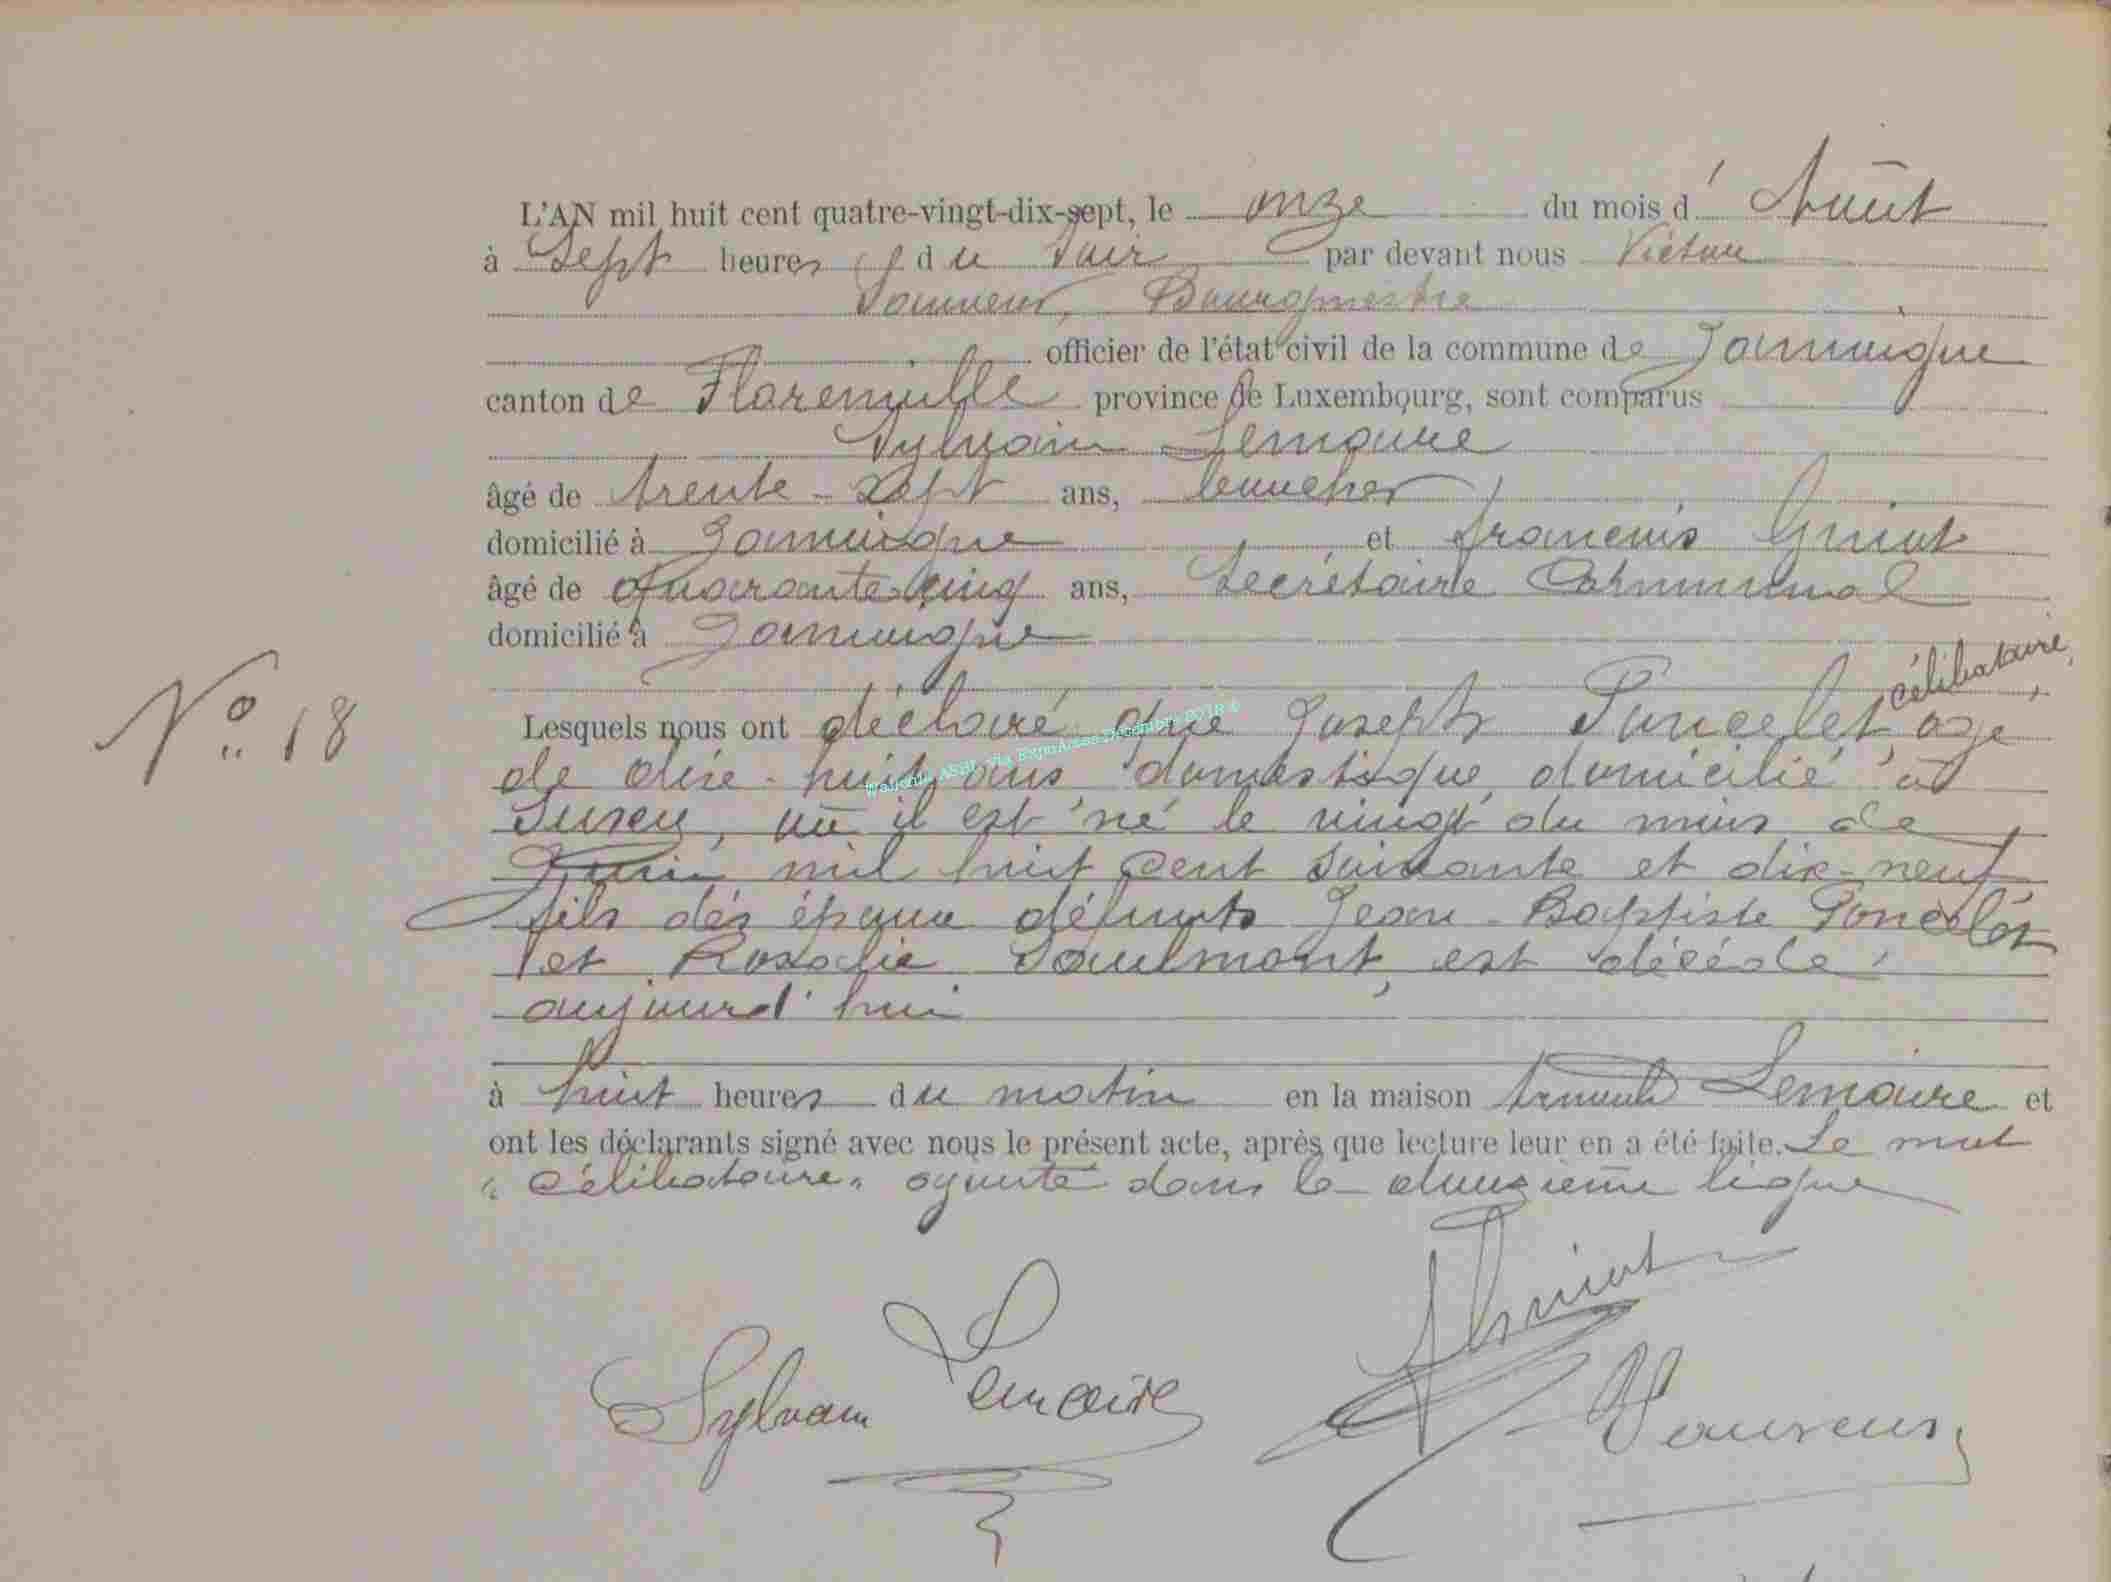 L'AN mil huit cent quatre-vingt-dix-sept, le onze du mois d' Août
à Sept heures du soir par devant nous Victor
Bourgmestre
officier de l'état civil de la commune de Jamoigne
canton de Florenville province de Luxembourg, sont comparus
Sylvain Lemaire
âgé de trente-sept ans, boucher
domicilié à Jamoigne et François
âgé de quarante cinq ans, Secrétaire Communal
domicilié à Jamoigne
célibataire,
N° 18
Lesquels nous ont déclaré que Joseph Poncelet, âgé
de dixe-huit ans domestique, domicilié à
Suxy, où il est né le vingt du mois de
Juin mil huit cent soixante et dix-neuf
fils des époux défunts Jean-Baptiste Poncelet
et Rosalie Saulmont, est décédé
aujourd'hui
à huit heures du matin en la maison Lemaire et
ont les déclarants signé avec nous le présent acte, après que lecture leur en a été faite. Le mot
"célibataire" ajouté dans la douzième ligne
Sylvain Lemaire
Wallonia ASBL via ExpoActes Décembre 2018 ©